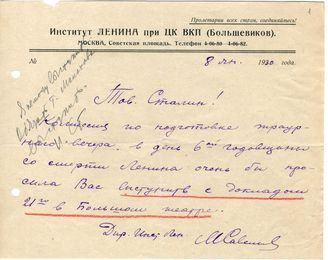 1
Пролетарии всех стран, соединяйтесь!
Институт ЛЕНИНА при ЦК ВКП (Большевиков).
МОСКВА, Советская площадь. Телефон 4-06-80 — 4-06-82.
№
8 янв. 1930 года.
Тов. Сталин!
Комиссия по подготовке траур-
ного вечера в день 6ой годовщины
со смерти Ленина очень бы про-
сила Вас выступить с докладом
21го в Большом театре.
Дир. Инст. Лен. МСавельев